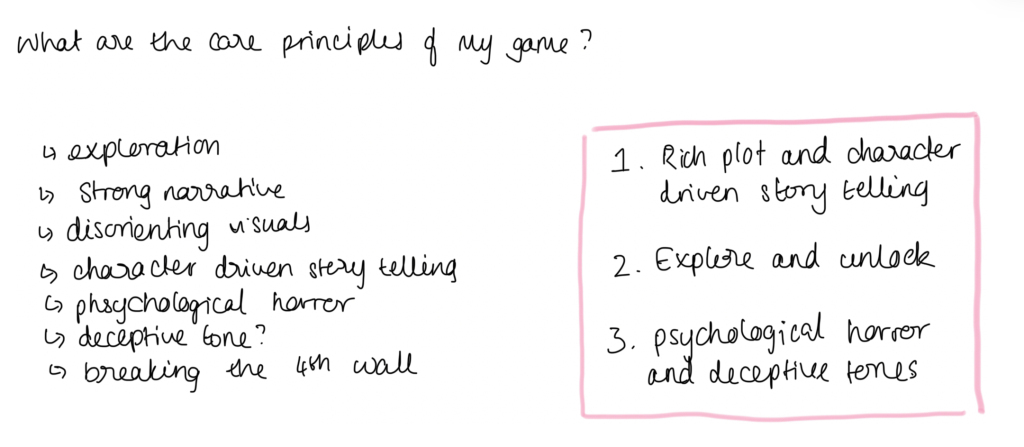 What are the core principles of my game?
↳ exploration
↳ strong narrative
↳ disorienting visuals
↳ character driven story telling
↳ phsychological horror
↳ deceptive tone?
↳ breaking the 4th wall
1. Rich plot and character
driven story telling
2. Explore and unlock
3. psychological horror
and deceptive tones